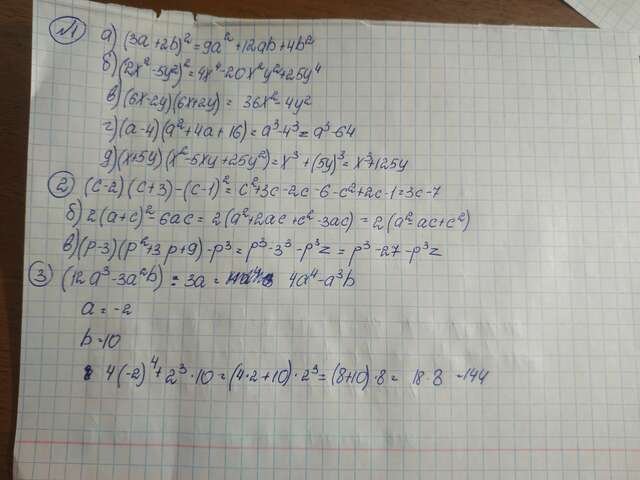 №1 а) (3a+2b)² = 9a² + 12ab + 4b²
б) (2x² - 5y²)² = 4x⁴ - 20x²y² + 25y⁴
в) (6x-2y)(6x+2y) = 36x² - 4y²
г) (a-4)(a²+4a+16) = a³-4³ = a³-64
д) (x+5y)(x²-5xy+25y²) = x³+(5y)³ = x³+125y
2) (c-2)(c+3)-(c-1)² = c²+3c-2c-6-c²+2c-1=3c-7
б) 2(a+c)²-6ac = 2(a²+2ac+c²-3ac) = 2(a²-ac+c²)
в) (p-3)(p²+3p+9)-p³ = p³-3³-p³z = p³-27-p³z
3) (12a³-3a²b) : 3a = 4a⁴-a³b
a = -2
b=10
4(-2)⁴+2³·10 = (4·2+10)·2³ = (8+10)·8 = 18·8 =144